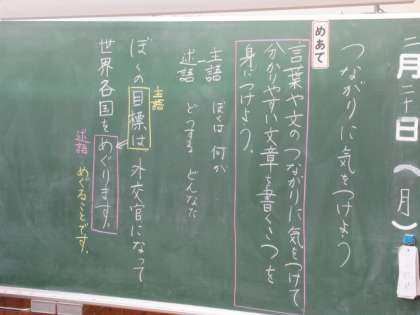 二月二十日（月）
つながりに気をつけよう
めあて
言葉や文のつながりに気をつけて
分かりやすい文章を書くこつを
身につけよう。
主語 ぼくは 何が
述語 どうする どんなだ
主語
ぼくの目標は外交官になって
世界各国をめぐります。
述語 めぐることです。